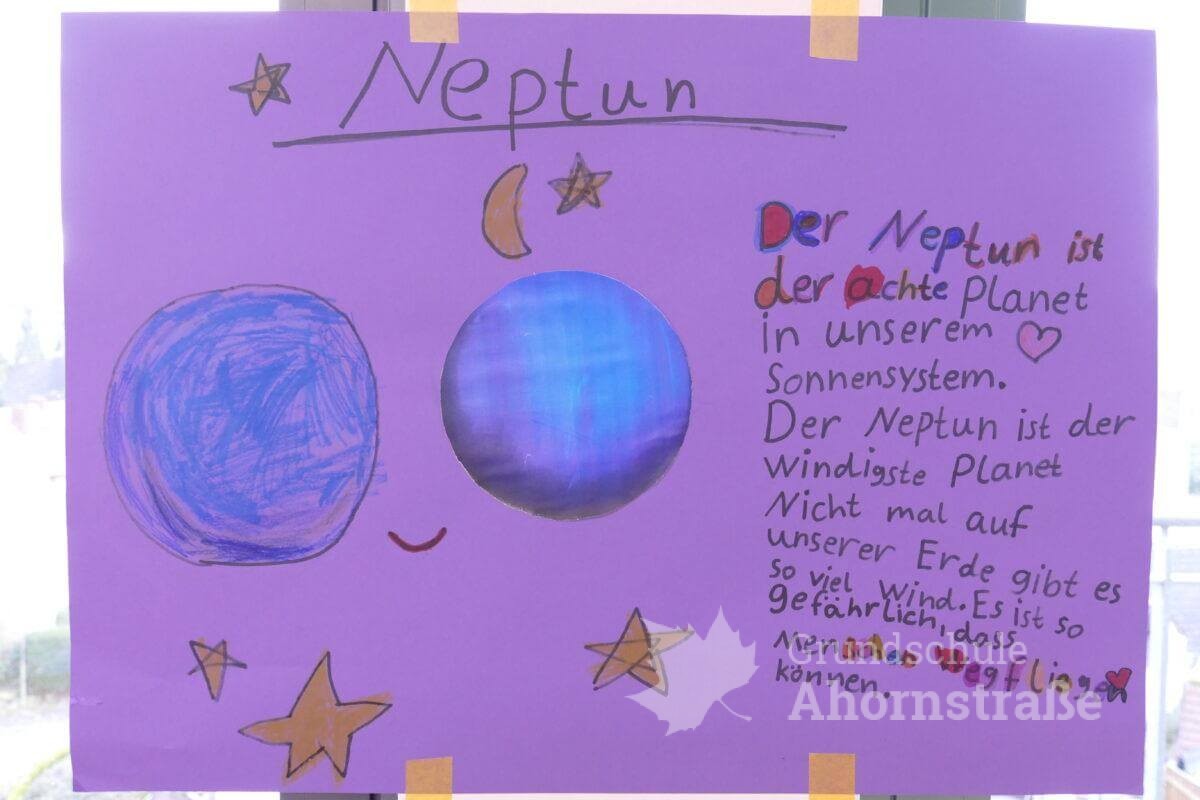 Neptun
Der Neptun ist
der achte Planet
in unserem
Sonnensystem.
Der Neptun ist der
windigste Planet
Nicht mal auf
unserer Erde gibt es
so viel Wind. Es ist so
gefährlich, dass
Menschen wegfliegen
können.
Grundschule
Ahornstraße